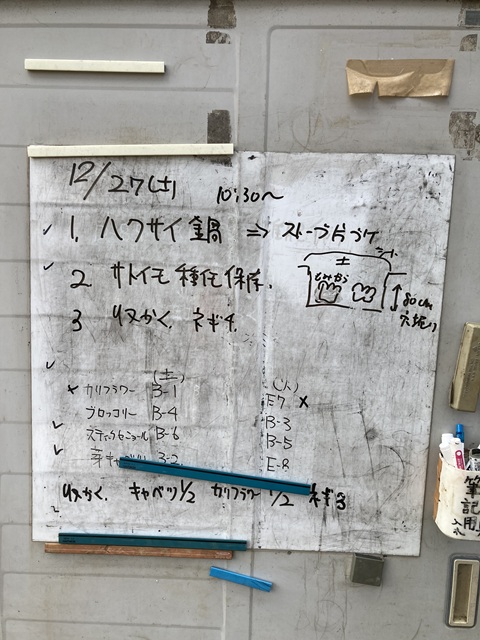 12/27(土) 10:30～
✓ 1. ハクサイ鍋 ⇒ ストーブ片づけ
✓ 2. サトイモ種芋保存.
シート
土
80cm
穴掘り
3 収かく. ネギ4.
(土) (火)
× カリフラワー B-1 E7 ×
ブロッコリー B-4 B-3
✓ スティックセニョール B-6 B-5
✓ 芽キャベツ B-2 E-8
収かく. キャベツ1/2 カリフラワー 1/2 ネギ3
筆記用